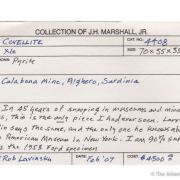 COLLECTION OF J.H. MARSHALL, JR.
COVELLITE CAT. NO. 4408
Xls SIZE: 70x55x35
Pyrite
Calabona Mine, Alghero, Sardinia
In 45 years of snooping in museums and mine
, this is the only piece I had ever seen. Larr
in says the same, and the only one he knows ab
Mineral Museum in Arizona. I am 90% sur
s the 1958 Ford specimen
Rob Lavinsky DATE: Feb '07 $4500